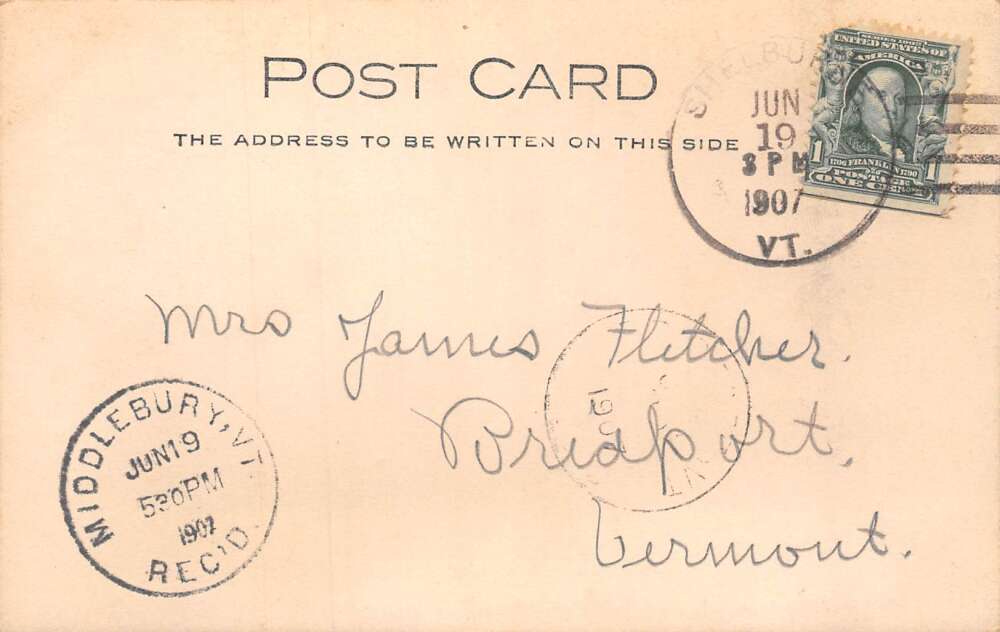 POST CARD
THE ADDRESS TO BE WRITTEN ON THIS SIDE
SHELBURNE
JUN
19
3 PM
1907
VT.
SERIES 1902
UNITED STATES OF
AMERICA
1706 FRANKLIN 1790
POSTAGE
1 ONE CENT 1
Mrs James Fletcher.
Bridport,
Vermont.
MIDDLEBURY, VT.
JUN 19
530PM
1907
REC'D.